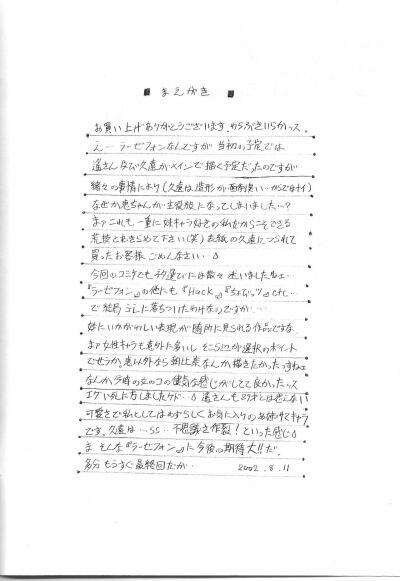 ■ まえがき ■
お買い上げありがとうございます。わらぶきいらかッス
えー ラーゼフォンなんですが 当初の予定では
遥さん及び久遠がメインで描く予定だったのですが
諸々の事情により(久遠は造形が面倒臭い…からではナイ)
なぜか恵ちゃんが主役級になってしまいました…?
まァこれも、一重に妹キャラ好きの私だからこそできる
荒技とあきらめて下さい(笑)表紙の久遠につられて
買ったお客様 ごめんなさい…
今回のコミケでもネタ選びには散々 迷いましたねェ…
『ラーゼフォン』の他にも『.Hack』『ちょびッツ』etc…
で 結局 コレに落ちついたわけなのですが…
妙にいかがわしい表現が随所に見られる作品ですな
まァ女性キャラも意外に多いし そこらへが選択のポイント
でせうか。恵以外なら 朝比奈なんか描きたかったっすねェ
なんか今時の女のコの健気な感じがしてて良かったッス
エグい死に方しましたケド… 遥さんも29才とは思えない
可愛さで私としてはめずらしくお気に入りのお姉サマキャラ
です。久遠は… 不思議之炸裂!といった感じ
ま そんな『ラーゼフォン』に今後の期待大!!だ。
多分 もうすぐ最終回だが… 2002.8.11